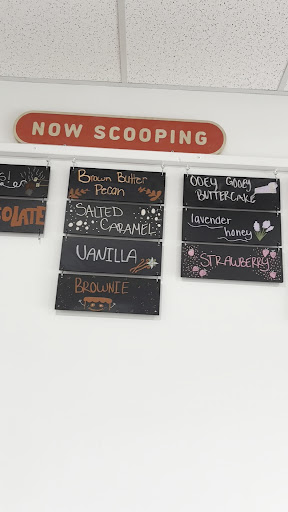 NOW SCOOPING
Brown Butter
Pecan
SALTED
CARAMEL
VANILLA
BROWNIE
OOEY GOOEY
BUTTERCAKE
lavender
honey
STRAWBERRY